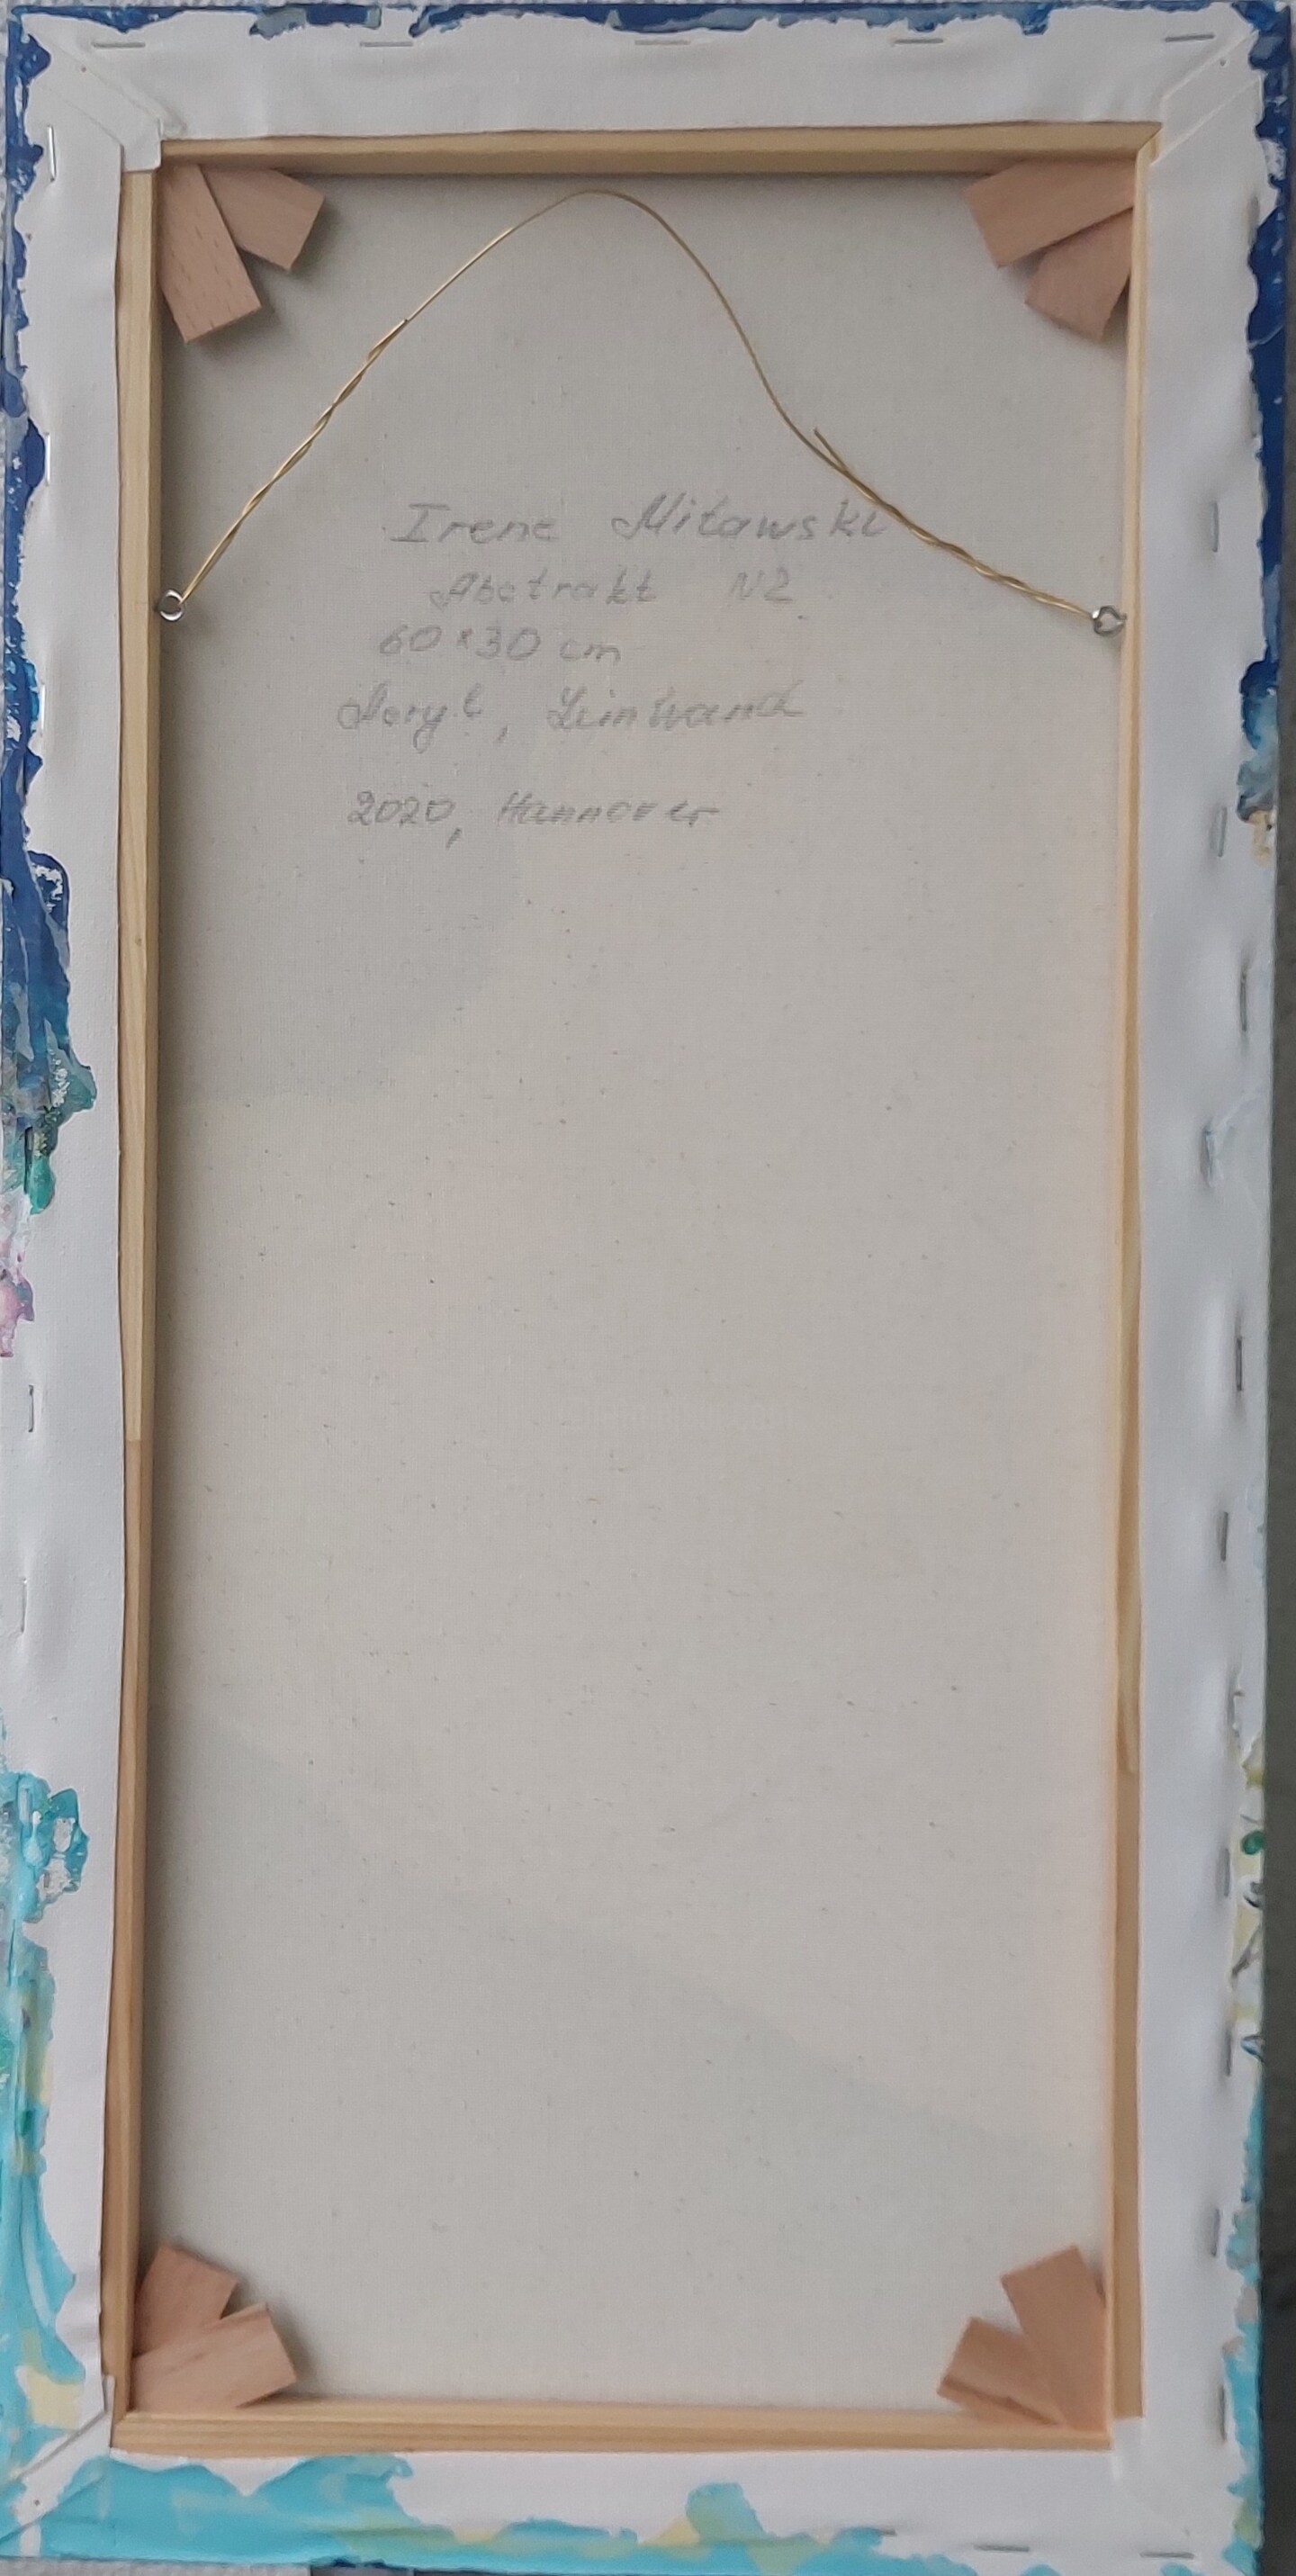 Irene Mitawski
Abstrakt N2
60 x 30 cm
Acryl, Leinwand
2020, Hannover